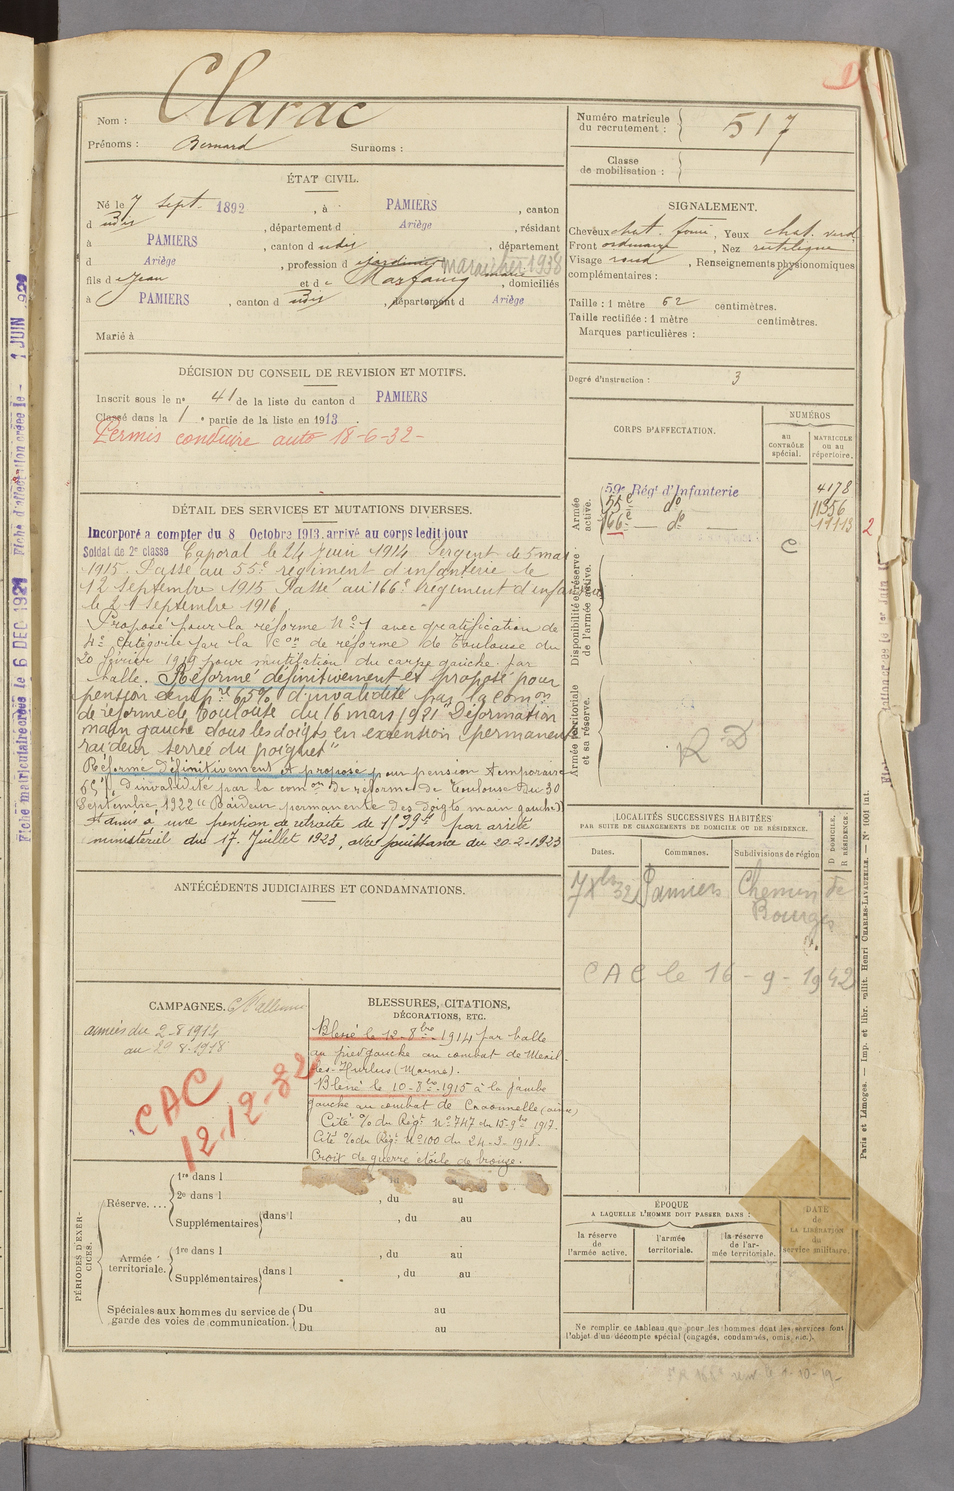 Nom : Clarac
Prénoms : Bernard Surnoms :
Numéro matricule du recrutement : 517
Classe de mobilisation :
ÉTAT CIVIL.
Né le 7 sept. 1892, à PAMIERS, canton
d udis, département d Ariège, résidant
à PAMIERS, canton d udis, département
d Ariège, profession d jardinier maraicher 1938
fils d e Jean et d e Marfaing Marie, domiciliés
à PAMIERS, canton d udis, département d Ariège
Marié à
SIGNALEMENT.
Cheveux chat. foncé, Yeux chat. verd.
Front ordinaire, Nez rectiligne
Visage rond, Renseignements physionomiques
complémentaires :
Taille : 1 mètre 62 centimètres.
Taille rectifiée : 1 mètre centimètres.
Marques particulières :
Degré d'instruction : 3
DÉCISION DU CONSEIL DE REVISION ET MOTIFS.
Inscrit sous le n° 41 de la liste du canton d PAMIERS
Classé dans la 1 e partie de la liste en 1913.
Permis conduire auto 18-6-32-
CORPS D'AFFECTATION.
NUMÉROS
au CONTRÔLE spécial.
MATRICULE ou au répertoire.
Armée active.
59e Régt d'Infanterie 4178
55e do 11356
166e — do — 19113 2
C
Disponibilité et réserve de l'armée active.
Armée territoriale et sa réserve.
RD
DÉTAIL DES SERVICES ET MUTATIONS DIVERSES.
Incorporé à compter du 8 Octobre 1913, arrivé au corps ledit jour
Soldat de 2e classe Caporal le 24 Juin 1914 Sergent le 5 mai
1915. Passé au 55e régiment d'infanterie le
12 Septembre 1915 Passé au 166e Régiment d'infanterie
le 21 Septembre 1916
Proposé pour la réforme No 1 avec gratification de
4e catégorie par la Con de réforme de Toulouse du
20 février 1919 pour mutilation du carpe gauche par
balle. Réformé définitivement et proposé pour
pension temp.re 65% d'invalidité par la Comon
de réforme de Toulouse du 16 mars 1921 "Déformation
main gauche tous les doigts en extension permanente
raideur serrée du poignet"
Réformé Définitivement et proposé pour pension temporaire
65% d'invalidité par la comon de réforme de Toulouse du 30
Septembre 1922 "Raideur permanente des doigts main gauche"
Admis à une pension de retraite de par arrêté
ministériel du 17 Juillet 1923, avec jouissance du 20-2-1923
ANTÉCÉDENTS JUDICIAIRES ET CONDAMNATIONS.
LOCALITÉS SUCCESSIVES HABITÉES
PAR SUITE DE CHANGEMENTS DE DOMICILE OU DE RÉSIDENCE.
Dates. Communes. Subdivisions de région.
D DOMICILE, R RÉSIDENCE.
7 Xbre 32 Pamiers Chemin de
Bourges
CAC le 16-9-1942
CAMPAGNES. C/ l'Allemagne
armées du 2-8 1914
au 29-8-1918
CAC
12-12-32
BLESSURES, CITATIONS,
DÉCORATIONS, ETC.
Blessé le 12-8bre-1914 par balle
au pied gauche au combat de Mesnil
les-Hurlus (Marne).
Blessé le 10-8bre-1915 à la jambe
gauche au combat de Craonnelle (aisne)
Cité % du Régt No 747 du 15-9bre 1917.
Cité % du Régt No 100 du 24-3-1918.
Croix de guerre étoile de bronze.
PÉRIODES D'EXERCICES.
Réserve....
1re dans l
2e dans l , du au
Supplémentaires dans l , du au
Armée territoriale.
1re dans l , du au
Supplémentaires dans l , du au
Spéciales aux hommes du service de garde des voies de communication.
Du au
Du au
ÉPOQUE
A LAQUELLE L'HOMME DOIT PASSER DANS :
la réserve de l'armée active.
l'armée territoriale.
la réserve de l'armée territoriale.
DATE de LA LIBÉRATION du service militaire.
Ne remplir ce tableau que pour les hommes dont les services font
l'objet d'un décompte spécial (engagés, condamnés, omis, etc.).
Paris et Limoges. — Imp. et libr. milit. Henri CHARLES-LAVAUZELLE. — N° 1001 int.
Fiche matriculaire créée le 6 DEC 1921 Fiche d'affectation créée le - 1 JUIN 1929